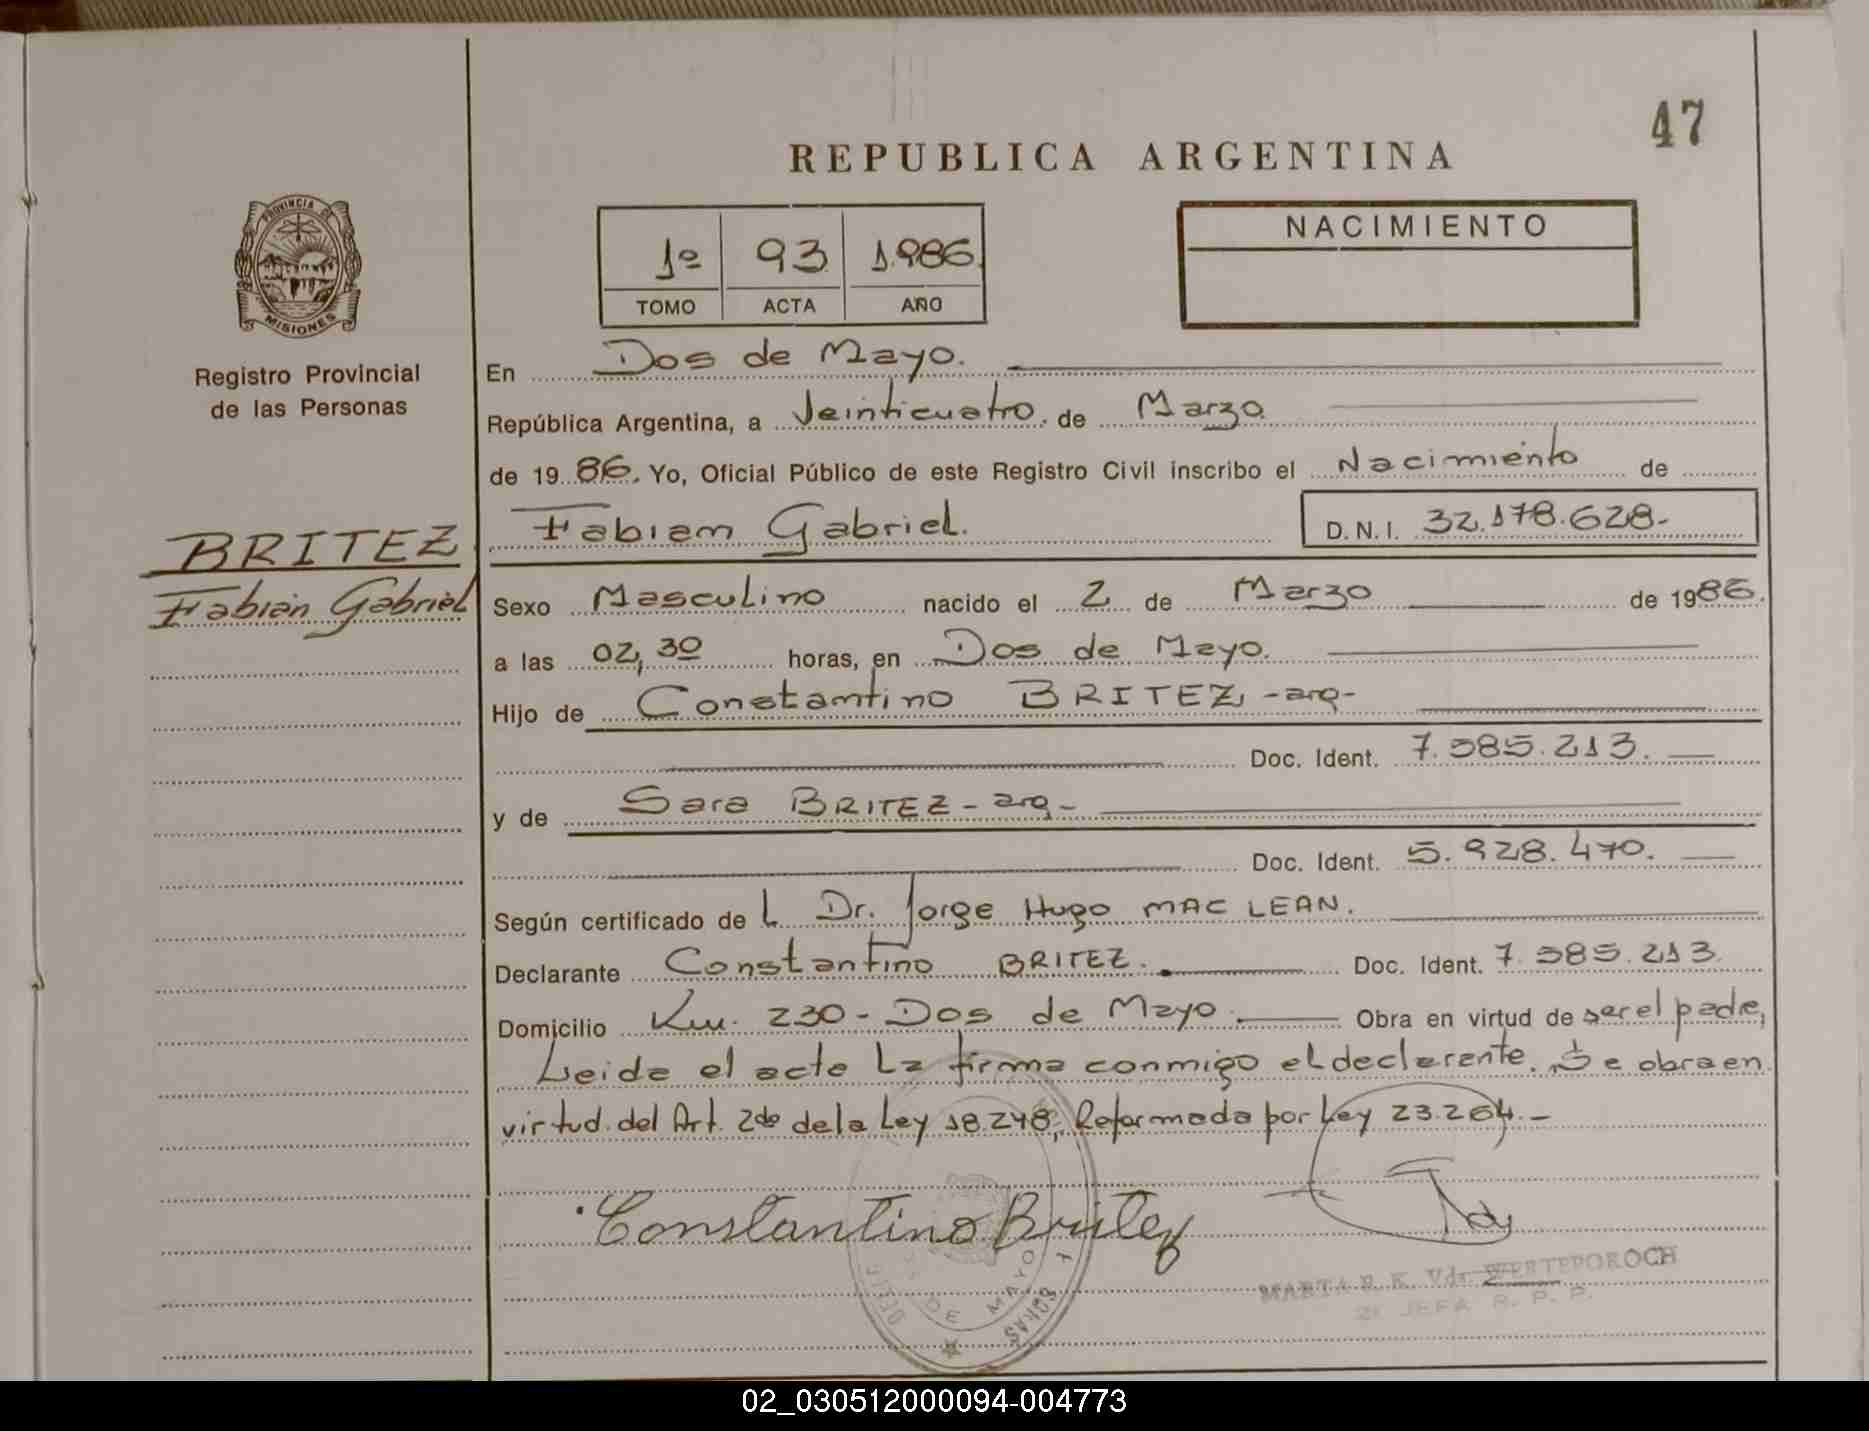 47
REPUBLICA ARGENTINA
PROVINCIA DE
MISIONES
Registro Provincial
de las Personas
1º 93 1.986
TOMO ACTA AÑO
NACIMIENTO
En Dos de Mayo.
República Argentina, a Veinticuatro. de Marzo
de 19 86. Yo, Oficial Público de este Registro Civil inscribo el Nacimiento de
Fabian Gabriel. D.N.I. 32.178.628-
BRITEZ
Fabián Gabriel
Sexo Masculino nacido el 2 de Marzo de 1986.
a las 02,30 horas, en Dos de Mayo.
Hijo de Constantino BRITEZ, -arg-
Doc. Ident. 7.585.213.
y de Sara BRITEZ - arg-
Doc. Ident. 5.928.470.
Según certificado de L Dr. Jorge Hugo MAC LEAN.
Declarante Constantino BRITEZ. Doc. Ident. 7.585.213.
Domicilio Km. 230 - Dos de Mayo. Obra en virtud de ser el padre,
Leida el acta La firma conmigo el declarante. Se obra en
virtud del Art. 2do de la Ley 18.248, Reformada por Ley 23.264.-
Constantino Britez
DE MAYO
MARTA R. K. Vda. WERTEPOROCH
JEFA R. P. P.
02_030512000094-004773